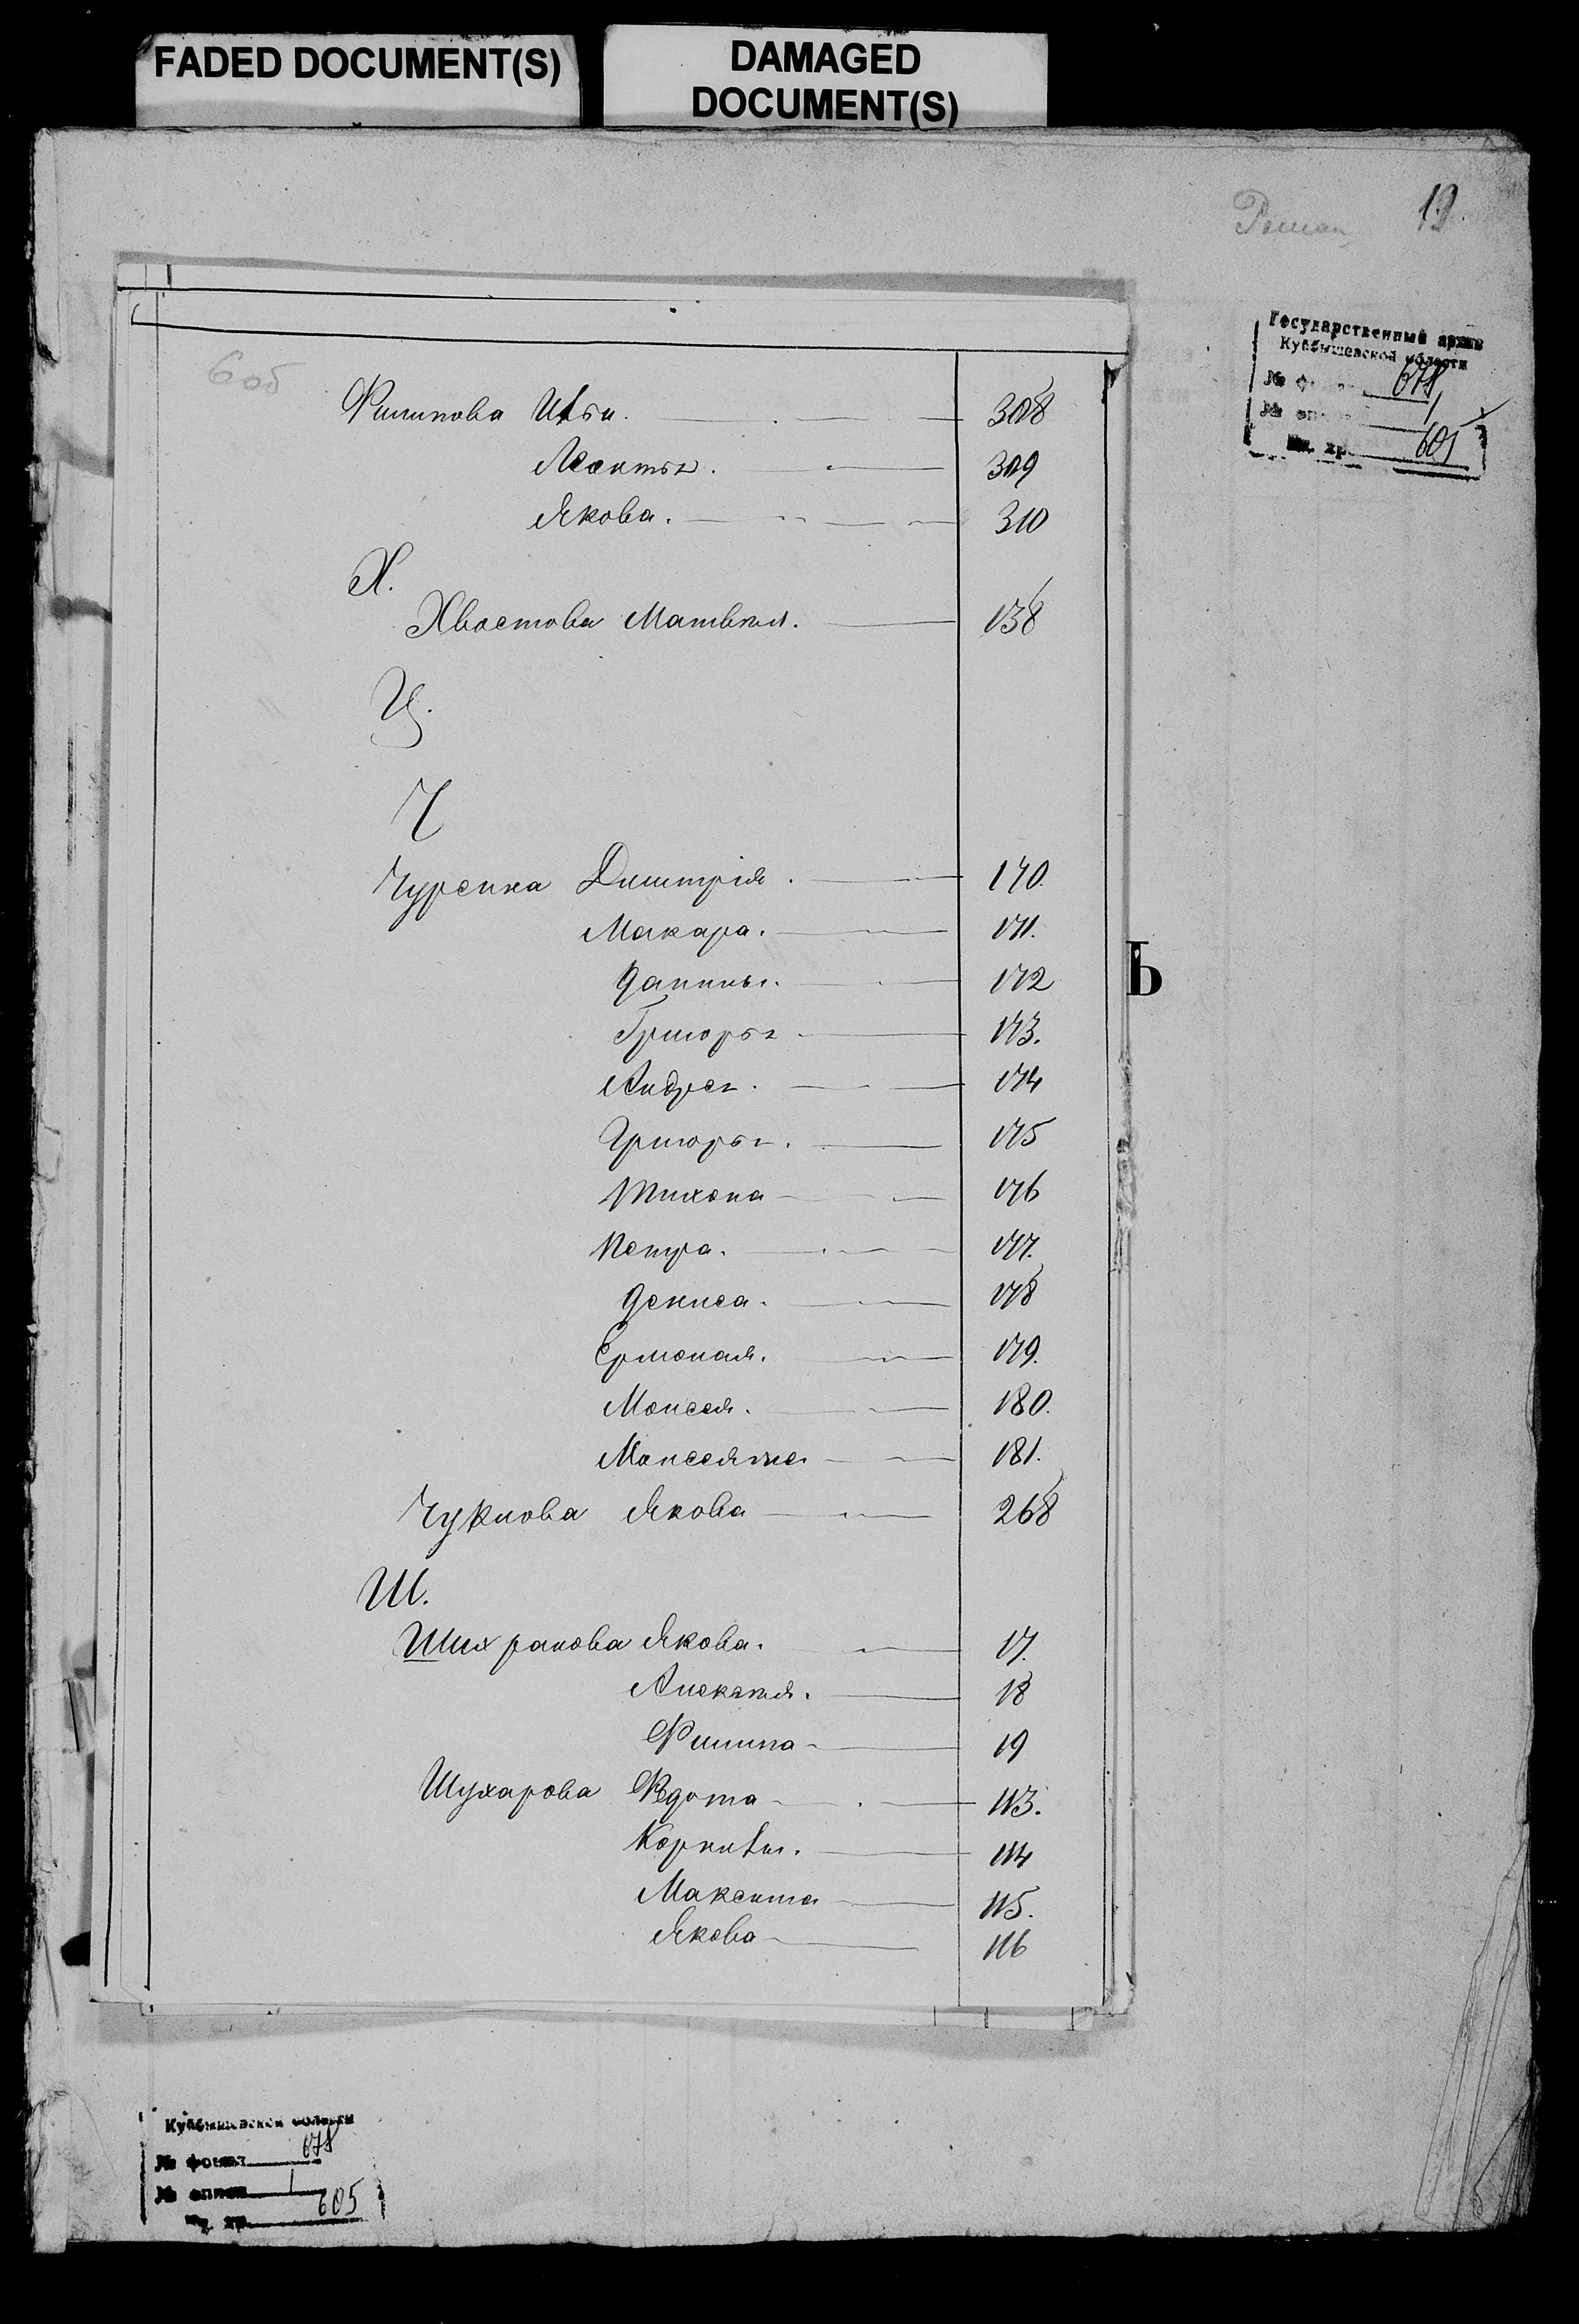 FADED DOCUMENT(S)
DAMAGED
DOCUMENT(S)
19.
Государственный архив
Куйбышевской области
№ фонда 678
№ описи 1
Ед. хр. 605
6 об
Филипова Ильи. 308
Леонтья. 309
Якова. 310
Х.
Хвостова Матвѣя. 138
Ц.
Ч
Чурсина Димитрія. 170.
Макара. 171.
Данилы. 172
Григорья 173.
Андрея. 174
Григорья. 175
Тихона 176
Петра. 177.
Дениса. 178
Ермолая. 179.
Моисея. 180.
Моисея же 181.
Чукнова Якова 268
Ш.
Шихранова Якова. 17.
Алексѣя. 18
Филипа 19
Шухарова Ѳедота 113.
Корнилы. 114
Максима 115.
Якова 116
Ъ
Куйбышевской области
№ фонда 678
№ описи 1
Ед. хр. 605